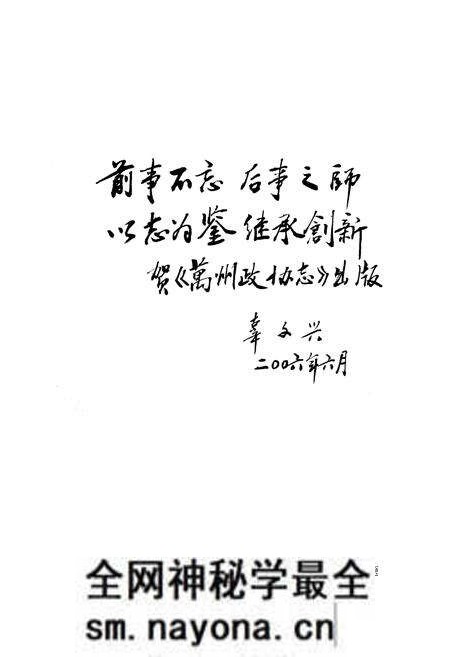 前事不忘 后事之師
以志为鉴 继承創新
贺《萬州政协志》出版
辜文兴
二00六年六月
全网神秘学最全
sm.nayona.cn